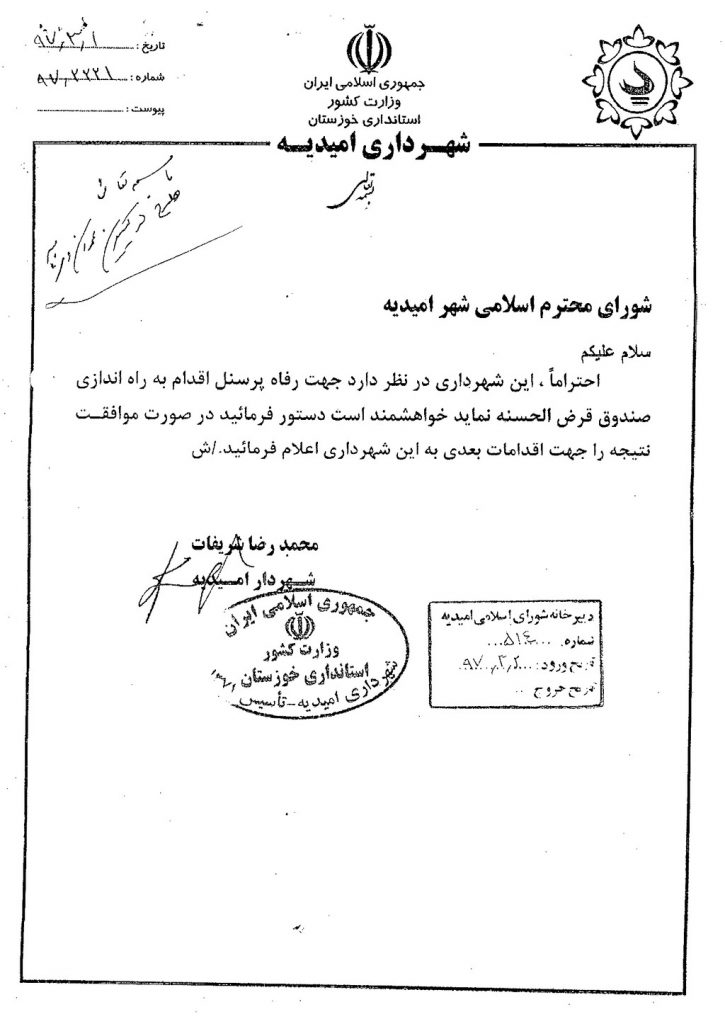 جمهوری اسلامی ایران
وزارت کشور
استانداری خوزستان
شهـرداری امیدیـه
بسمه تعالی
تاریخ : ۹۷٫۳٫۱
شماره : ۹۷٫۲۲۲۱
پیوست :
باسمه تعالی
شورای محترم اسلامی شهر امیدیه
سلام علیکم
احتراماً ، این شهرداری در نظر دارد جهت رفاه پرسنل اقدام به راه اندازی
صندوق قرض الحسنه نماید خواهشمند است دستور فرمائید در صورت موافقـت
نتیجه را جهت اقدامات بعدی به این شهرداری اعلام فرمائید./ش
محمد رضا شریفات
شـهردار امـیدیه
جمهوری اسلامی ایران
وزارت کشور
استانداری خوزستان
شهرداری امیدیه-تأسیس
دبیرخانه شورای اسلامی امیدیه
شماره: ...۵۱۴...
تاریخ ورود: ...۹۷٫۳٫
تاریخ خروج ..